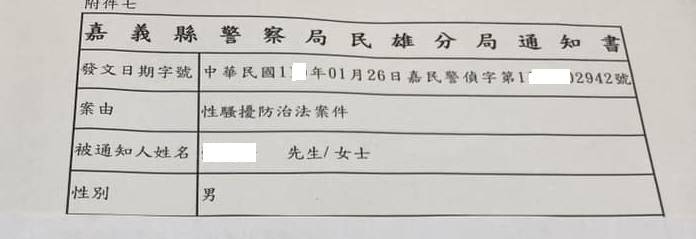 附件七
嘉義縣警察局民雄分局通知書
發文日期字號 中華民國1 年01月26日嘉民警偵字第1 02942號
案由 性騷擾防治法案件
被通知人姓名 先生/女士
性別 男